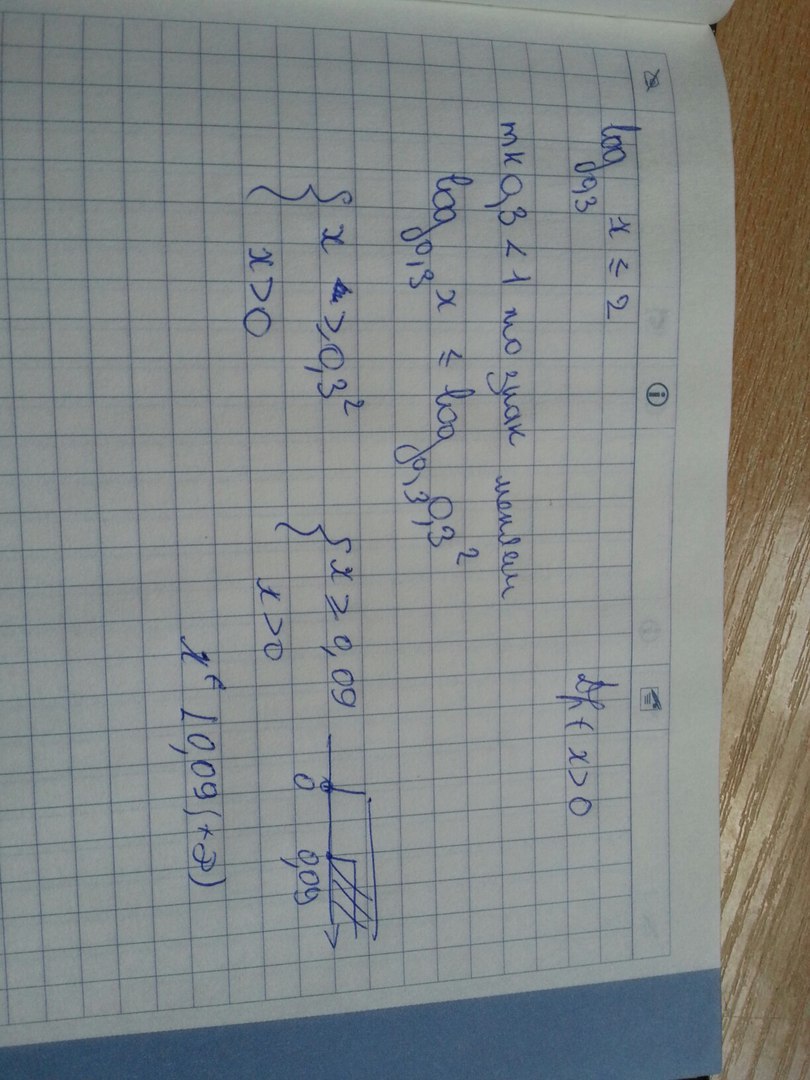 log₀,₃ x ≤ 2
D(f) x>0
тк 0,3 < 1 то знак меняем
log₀,₃ x ≤ log₀,₃ 0,3²
{ x ≥ 0,3² { x ≥ 0,09
x>0 x>0
0 0,09
x ∈ [0,09; +∞)